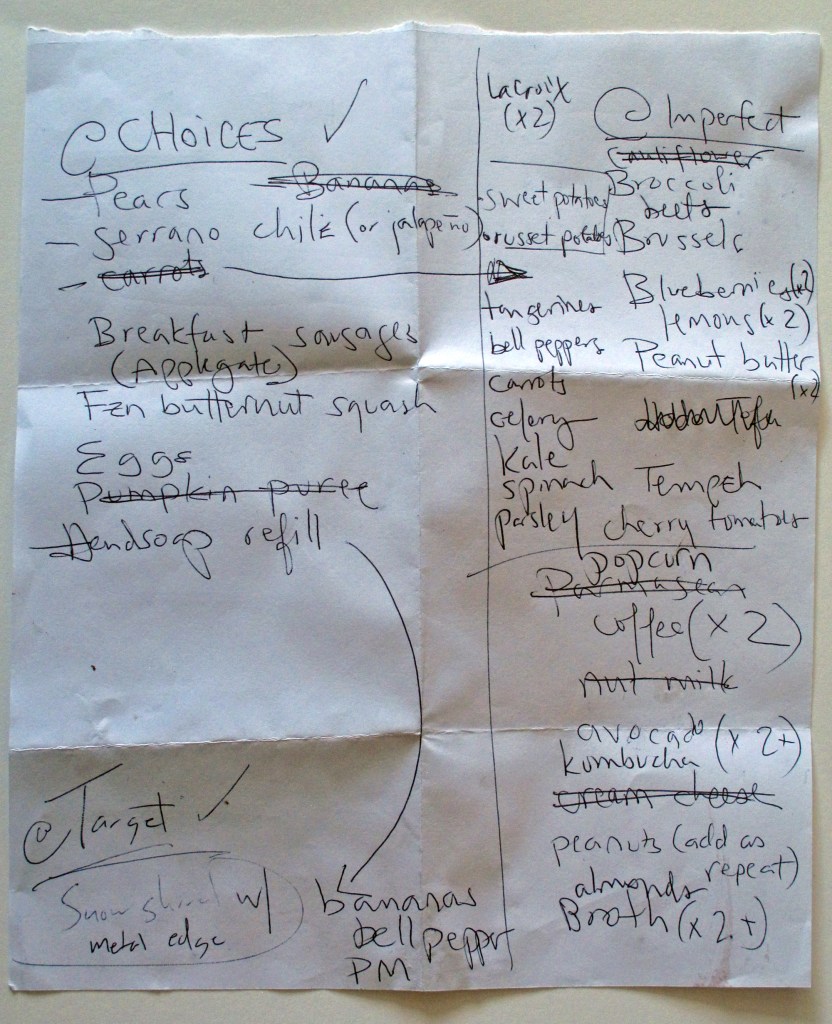 @ CHOICES ✓
Pears
Bananas
Serrano chile (or jalapeño)
carrots
Breakfast sausages
(Applegate)
Fzn butternut squash
Eggs
Pumpkin puree
Handsoap refill
@ Target ✓
Snow shovel w/
metal edge
bananas
bell pepper
PM
LaCroix
(x2)
sweet potatoes
russet potatoes
tangerines
bell peppers
carrots
celery
kale
spinach
parsley
@ Imperfect
Cauliflower
Broccoli
beets
Brussels
Blueberries (x2)
lemons (x2)
Peanut butter
(x2)
Tempeh
cherry tomatoes
popcorn
Parmasean
coffee (x 2)
nut milk
avocado (x 2+)
kombucha
cream cheese
peanuts (add as
repeat)
almonds
Broth (x 2+)